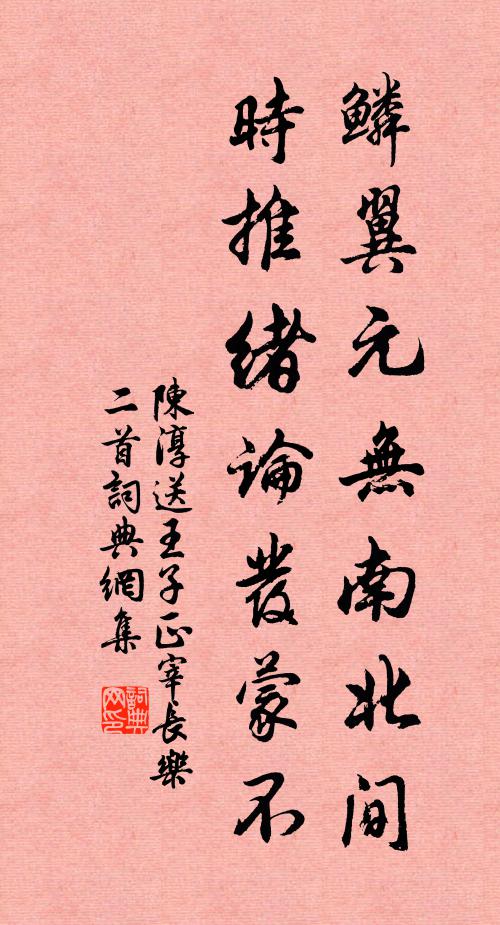 鱗翼元無南北間
時推緒論發蒙不
陳淳送王子正宰長樂
二首詞典網集
詞典网印